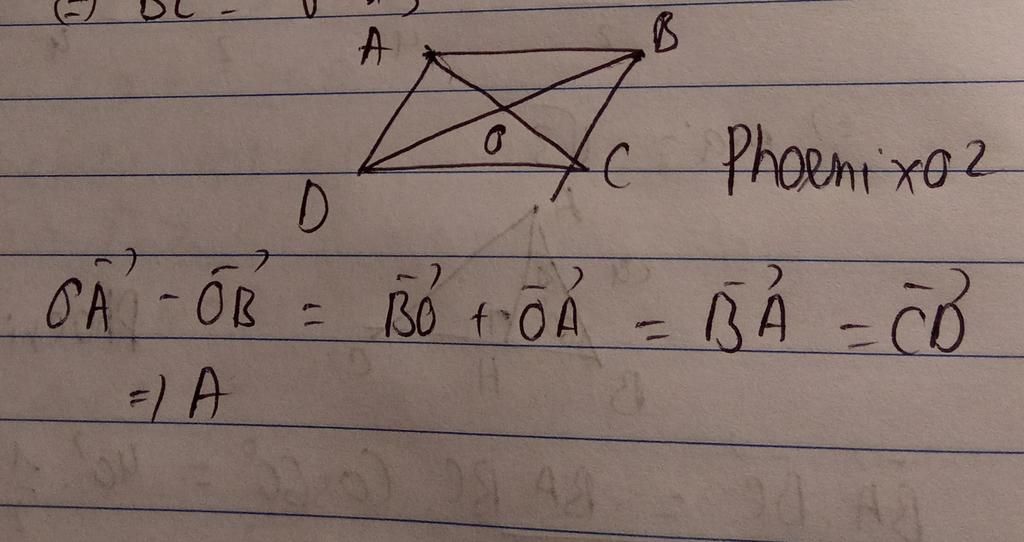 (=) BC =
A B
O
D C Phoenix02
OA⃗ - OB⃗ = BO⃗ + OA⃗ = BA⃗ = CD⃗
=) A